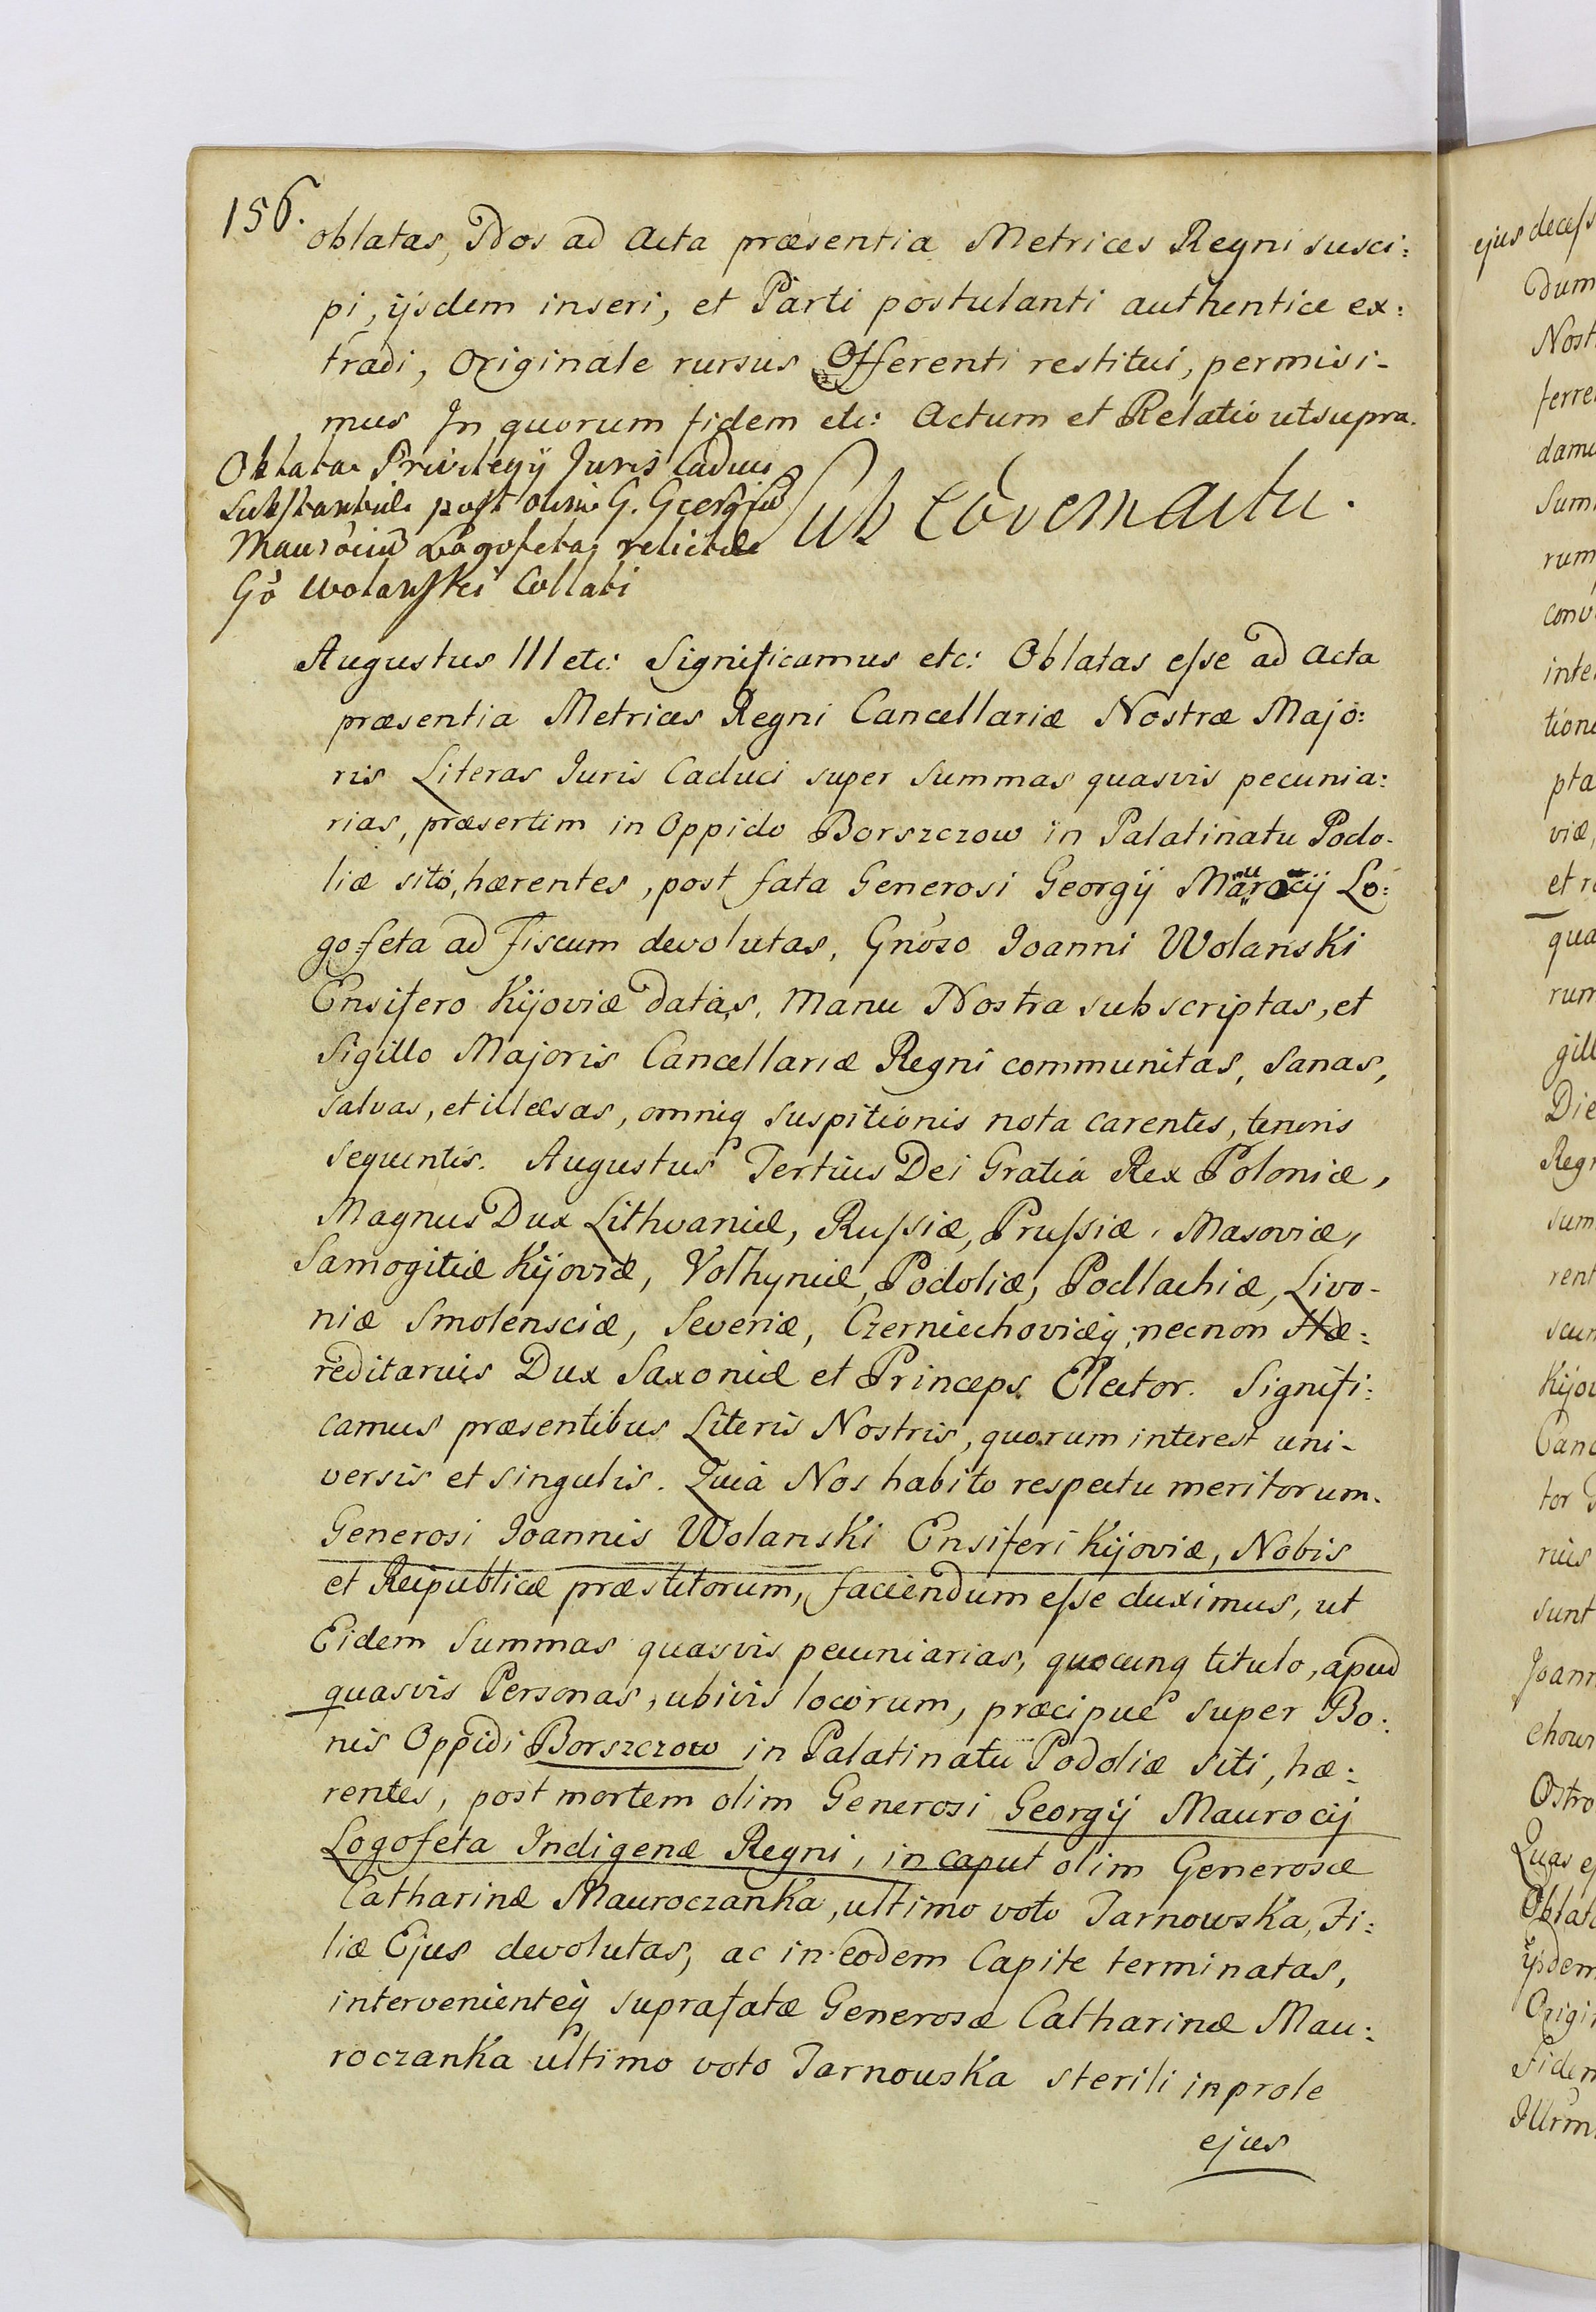 156.
oblatas, Nos ad Acta præsentia Metrices Regni susci:
pi, ijsdem inseri, et Parti postulanti authentice ex:
tradi, Originale rursus Offerenti restitui, permisi-
mus In quorum fidem etc: Actum et Relatio utsupra.
Oblata Privilegÿ Juris Caduci
Substantiæ post olim G. Georgiū
Maurociū Logofeta relictæ
Gō Wolanski Collati
Sub eōdem actu.
Augustus III etc: Significamus etc: Oblatas eſse ad Acta
præsentia Metrices Regni Cancellariæ Nostræ Majo:
ris Literas Juris Caduci super Summas quasvis pecunia:
rias, præsertim in Oppido Borszczow in Palatinatu Podo-
liæ sito, hærentes, post fata Generosi Georgij Maurocij Lo:
gofeta ad Fiscum devolutas, Gnoso Joanni Wolanski
Ensifero Kijoviæ datas, Manu Nostra subscriptas, et
Sigillo Majoris Cancellariæ Regni communitas, Sanas,
salvas, et illæsas, omniq suspitionis nota carentes, tenoris
sequentis. Augustus Tertius Dei Gratia Rex Poloniæ,
Magnus Dux Lithvaniæ, Ruſsiæ, Pruſsiæ, Masoviæ,
Samogitiæ Kijoviæ, Volhyniæ, Podoliæ, Podlachiæ, Livo-
niæ Smolensciæ, Severiæ, Czerniechoviæq; necnon Hæ:
reditarius Dux Saxoniæ et Princeps Elector. Signifi:
camus præsentibus Literis Nostris, quorum interest uni-
versis et singulis. Quia Nos habito respectu meritorum
Generosi Joannis Wolanski Ensiferi Kijoviæ, Nobis
et Reipublicæ præstitorum, faciendum eſse duximus, ut
Eidem Summas quasvis pecuniarias, quocunq titulo, apud
quasvis Personas, ubivis locorum, præcipue super Bo:
nis Oppidi Borszczow in Palatinatu Podoliæ siti, hæ:
rentes, post mortem olim Generosi Georgij Maurocij
Logofeta Indigenæ Regni, in caput olim Generosæ
Catharinæ Mauroczanka, ultimo voto Tarnowska, Fi:
liæ Ejus devolutas, ac in eodem Capite terminatas,
intervenienteq suprafatæ Generosæ Catharinæ Mau:
roczanka ultimo voto Tarnouska sterili in prole
ejus
ejus deceſs
dum
Nost
ferre
damu
Sum
rum
conv
inte
tione
pta
viæ,
et r
qua
rum
gill
Die
Reg
sum
rent
scun
Kijov
Canc
tor
rius
sunt
Joann
chow
Ostro
Quas e
Oblat
ijsdem
Origi
Fidem
Illrm